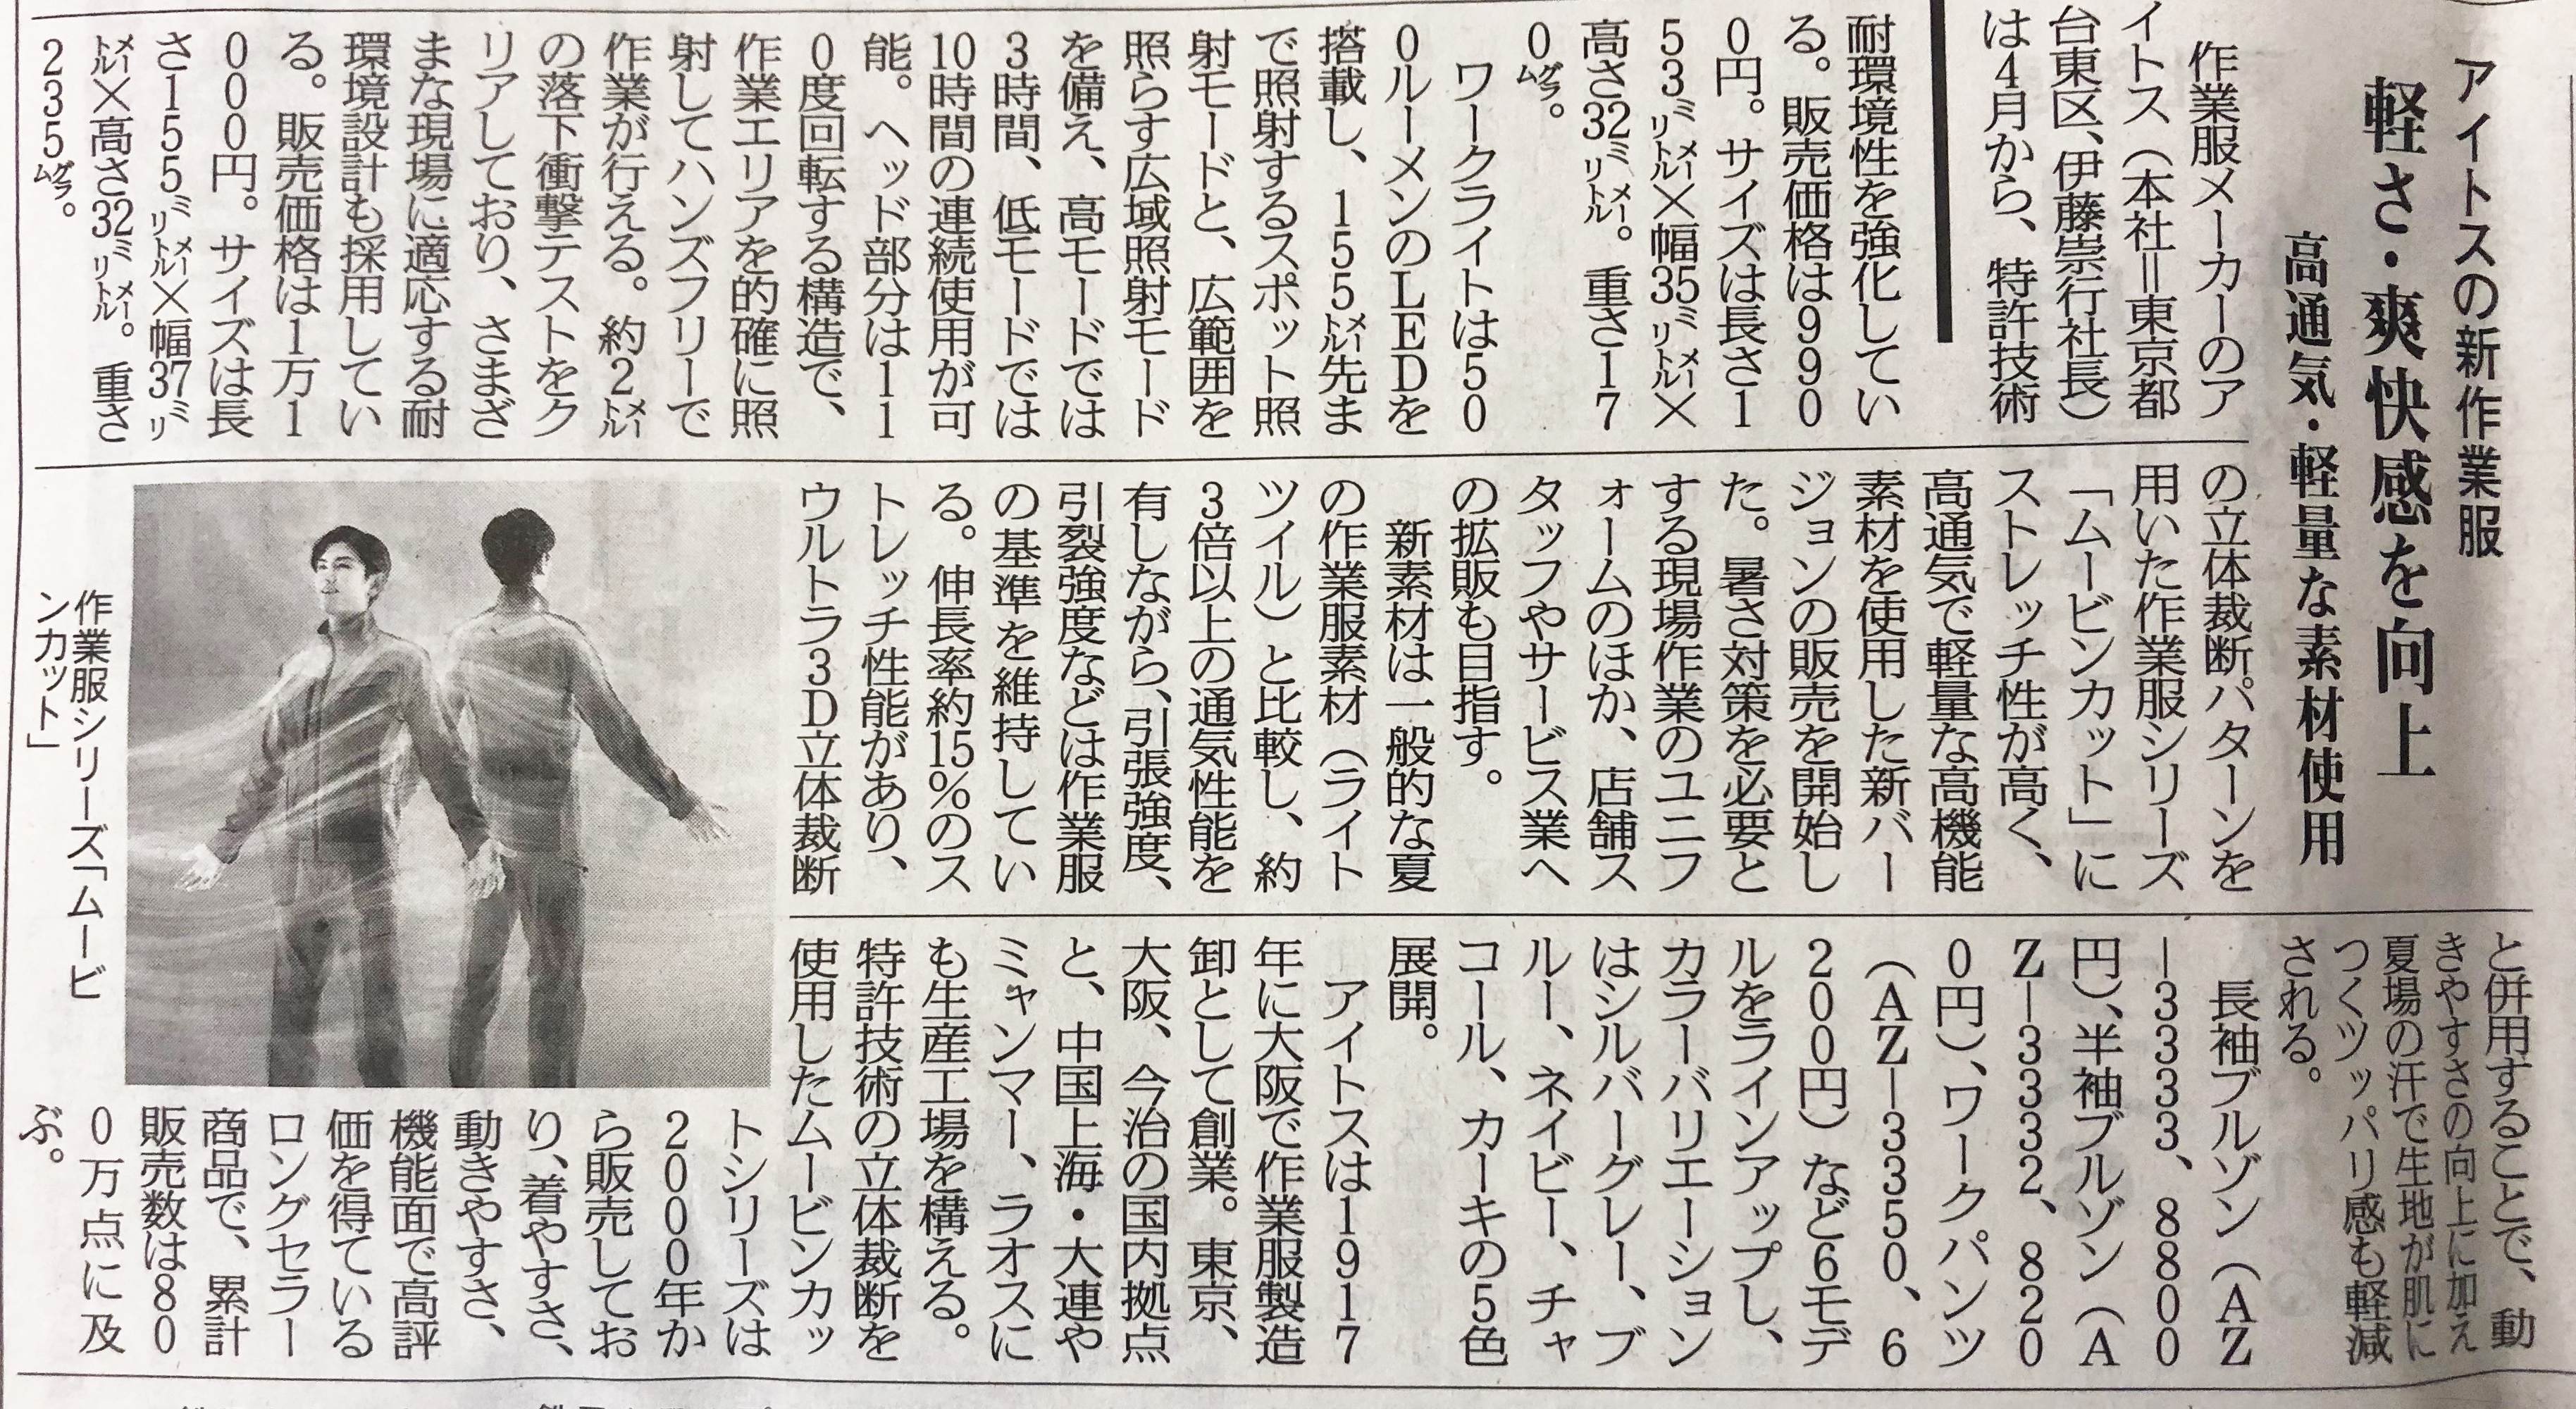 アイトスの新作業服
軽さ・爽快感を向上
高通気・軽量な素材使用
作業服メーカーのア
イトス（本社＝東京都
台東区、伊藤崇行社長）
は4月から、特許技術
の立体裁断パターンを
用いた作業服シリーズ
「ムービンカット」に
ストレッチ性が高く、
高通気で軽量な高機能
素材を使用した新バー
ジョンの販売を開始し
た。暑さ対策を必要と
する現場作業のユニフ
ォームのほか、店舗ス
タッフやサービス業へ
の拡販も目指す。
新素材は一般的な夏
の作業服素材（ライト
ツイル）と比較し、約
3倍以上の通気性能を
有しながら、引張強度、
引裂強度などは作業服
の基準を維持してい
る。伸長率約15％のス
トレッチ性能があり、
ウルトラ3D立体裁断
と併用することで、動
きやすさの向上に加え
夏場の汗で生地が肌に
つくツッパリ感も軽減
される。
長袖ブルゾン（AZ
―3333、8800
円）、半袖ブルゾン（A
Z―3332、820
0円）、ワークパンツ
（AZ―3350、6
200円）など6モデ
ルをラインアップし、
カラーバリエーション
はシルバーグレー、ブ
ルー、ネイビー、チャ
コール、カーキの5色
展開。
アイトスは1917
年に大阪で作業服製造
卸として創業。東京、
大阪、今治の国内拠点
と、中国上海・大連や
ミャンマー、ラオスに
も生産工場を構える。
特許技術の立体裁断を
使用したムービンカッ
トシリーズは
2000年か
ら販売してお
り、着やすさ、
動きやすさ、
機能面で高評
価を得ている
ロングセラー
商品で、累計
販売数は80
0万点に及
ぶ。
作業服シリーズ「ムービ
ンカット」
耐環境性を強化してい
る。販売価格は990
0円。サイズは長さ1
53㍉㍍×幅35㍉㍍×
高さ32㍉㍍。重さ17
0㌘。
ワークライトは50
0ルーメンのLEDを
搭載し、155㍍先ま
で照射するスポット照
射モードと、広範囲を
照らす広域照射モード
を備え、高モードでは
3時間、低モードでは
10時間の連続使用が可
能。ヘッド部分は11
0度回転する構造で、
作業エリアを的確に照
射してハンズフリーで
作業が行える。約2㍍
の落下衝撃テストをク
リアしており、さまざ
まな現場に適応する耐
環境設計も採用してい
る。販売価格は1万1
000円。サイズは長
さ155㍉㍍×幅37㍉
㍍×高さ32㍉㍍。重さ
235㌘。